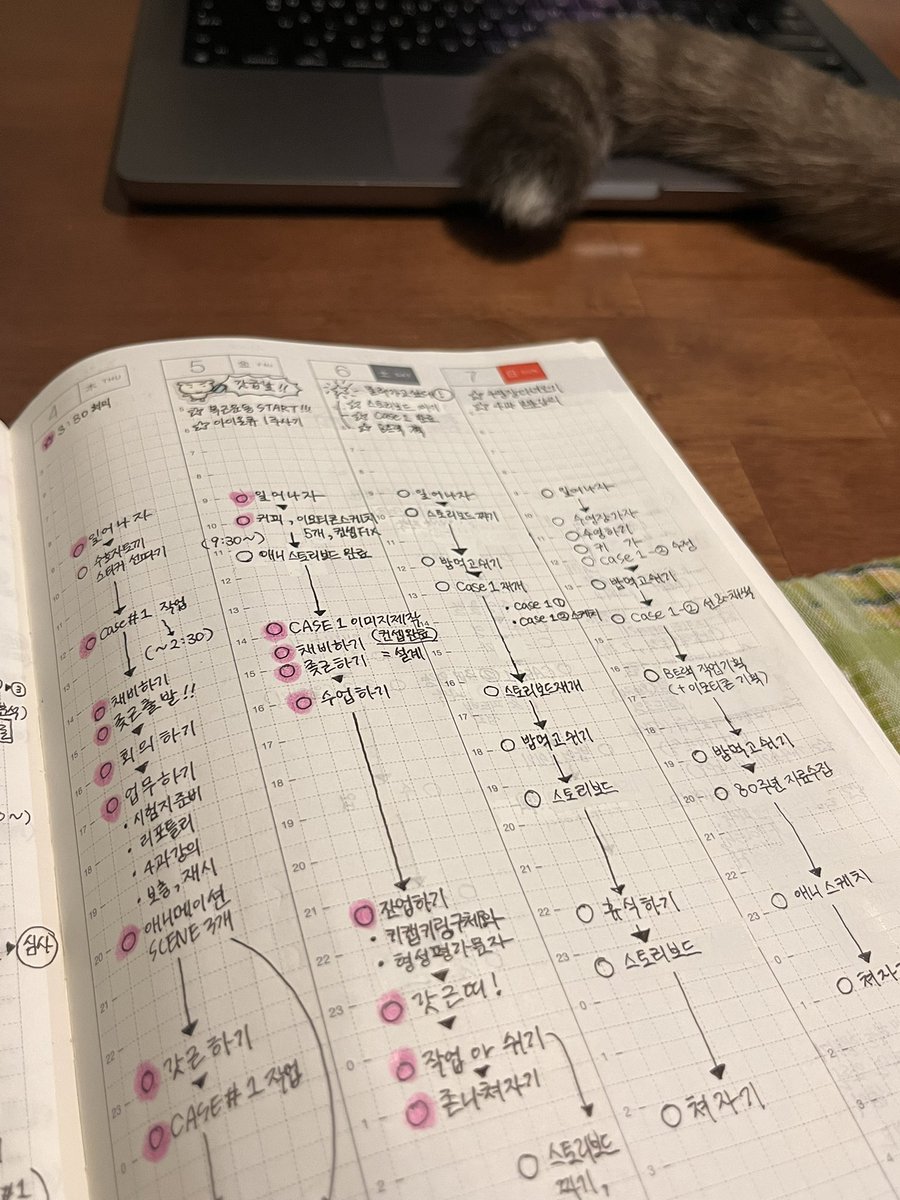 4 木 THU
3:30 회의
일어나자
수호자토끼
스티커 선따기
Case#1 작업
(~2:30)
채비하기
줒근출발!!
회의하기
업무하기
• 시험지준비
• 리포틀리
• 4과강의
• 보충, 재시
애니메이션
SCENE 3개
갓근하기
CASE#1 작업
5 金
복근운동 START!!!
일어나자
커피, 이모티콘스케치
5개, 컨셉FIX
(9:30~)
애니 스토리보드 완료
CASE 1 이미지제작
(컨셉완료)
채비하기
줒근하기 = 설계
수업하기
작업하기
• 키캡키링구체화
• 형성평가문자
갓근띠!
작업 or 쉬기
존나쳐자기
스토리보드
짜기,
6 土
스토리보드 짜기
Case 1 완료
일어나자
스토리보드 짜기
밥먹고쉬기
Case 1 재개
• case 1①
• case 1② 스케치
스토리보드재개
밥먹고쉬기
스토리보드
휴식하기
스토리보드
쳐자기
7 日 SUN
일어나자
수영장가자
수영하기
귀 가
case 1-② 수정
밥먹고쉬기
Case 1-② 선&채색
B트랙 작업기획
(+이모티콘 기획)
밥먹고쉬기
80주년 자료수집
애니 스케치
쳐자기
심사
#1